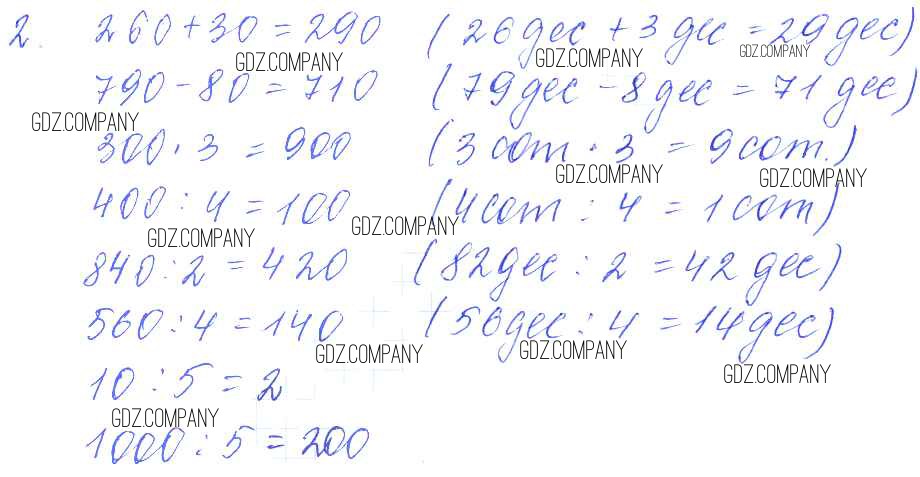 2. 260 + 30 = 290 (26 дес + 3 дес = 29 дес)
GDZ.COMPANY GDZ.COMPANY GDZ.COMPANY
790 - 80 = 710 (79 дес - 8 дес = 71 дес)
GDZ.COMPANY
300 · 3 = 900 (3 сот · 3 = 9 сот.)
GDZ.COMPANY GDZ.COMPANY
400 : 4 = 100 (4 сот : 4 = 1 сот)
GDZ.COMPANY GDZ.COMPANY
840 : 2 = 420 (82 дес : 2 = 42 дес)
560 : 4 = 140 (56 дес : 4 = 14 дес)
GDZ.COMPANY GDZ.COMPANY GDZ.COMPANY
10 : 5 = 2
GDZ.COMPANY
1000 : 5 = 200